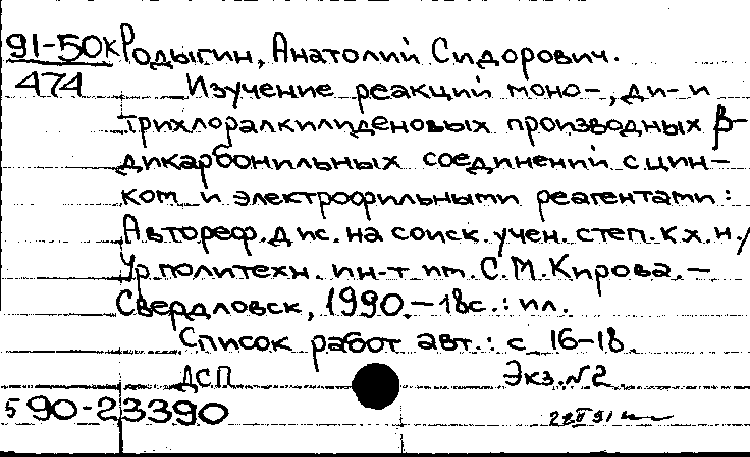 91-50к Родыгин, Анатолий Сидорович.
474 Изучение реакций моно-, ди- и
трихлоралкилиденовых производных β-
дикарбонильных соединений с цин-
ком и электрофильными реагентами :
Автореф. дис. на соиск. учен. степ. к.х.н. /
Ур. политехн. ин-т им. С.М. Кирова. –
Свердловск, 1990. – 18с. : ил.
Список работ авт.: с 16-18.
ДСП Экз. N2
5 90-23390